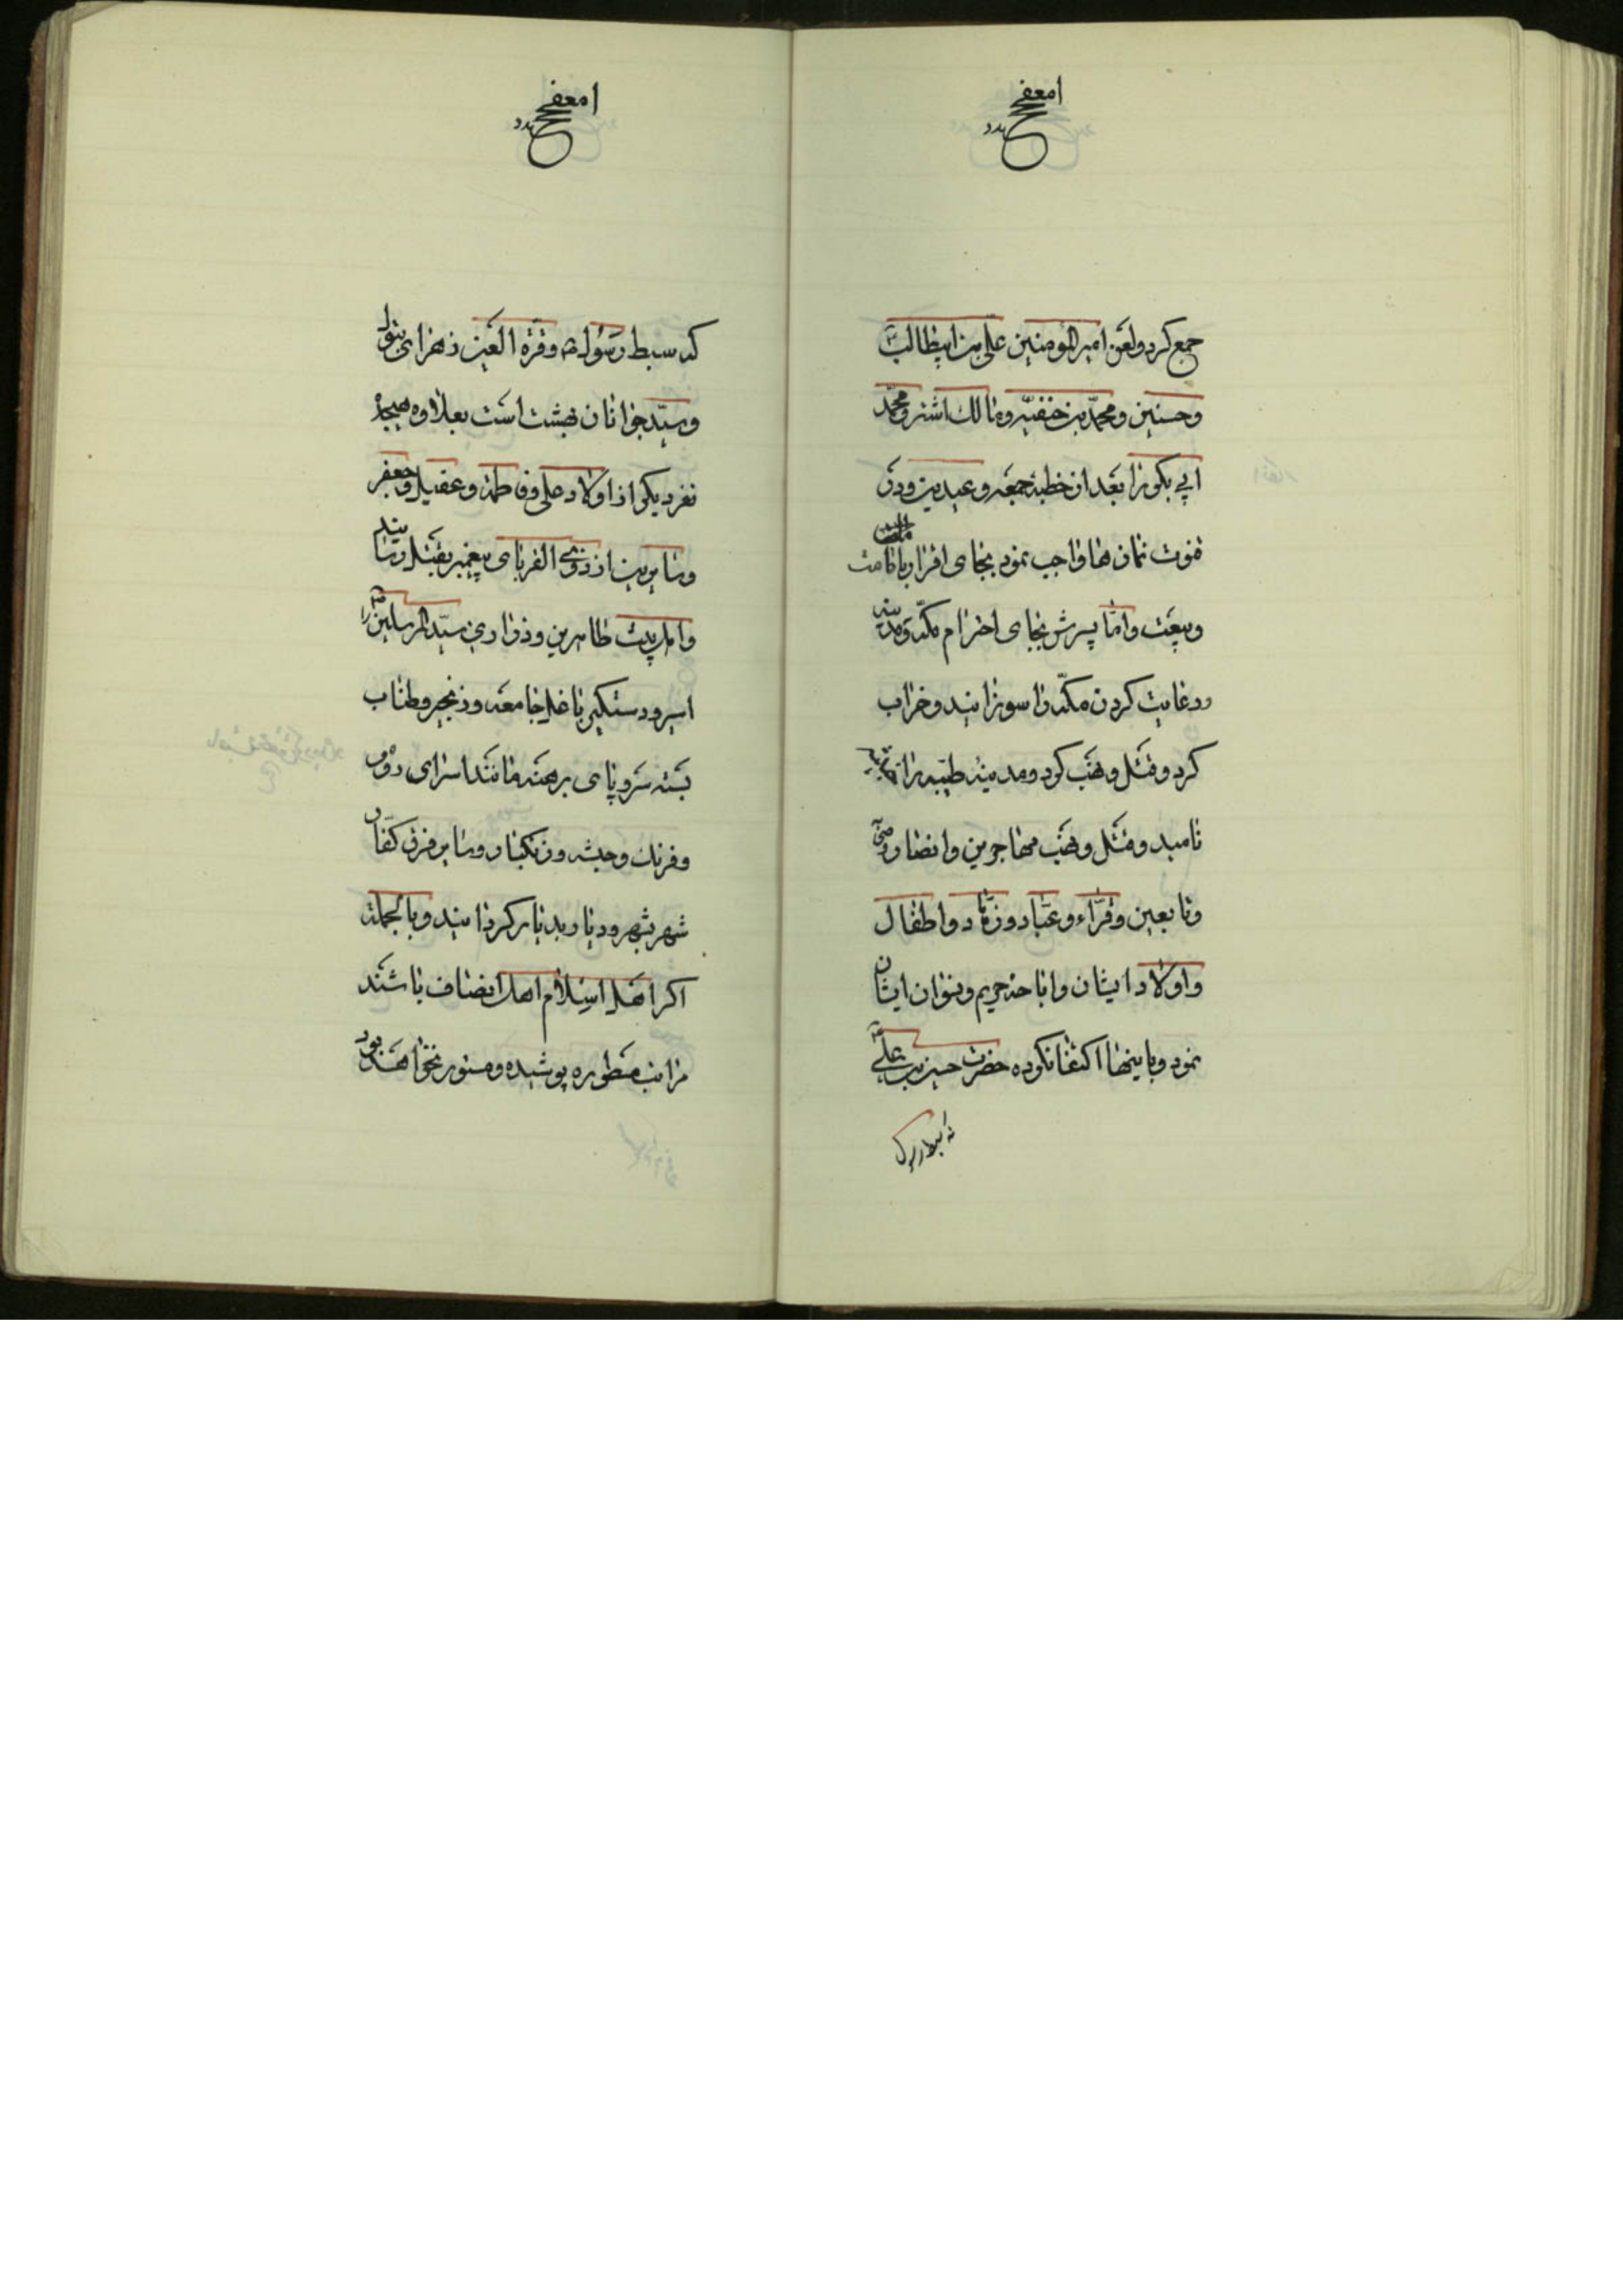 جمع کرد و لعن امیرالمؤمنین علی بن ابیطالب
و حسنین و محمد بن حنفیه و مالک اشتر و محمد
ابی بکر را بعد از خطبهٔ جمعه و عیدین و در
قنوت نمازها واجب نمود بجای اقرار بامامت
و بیعت و امّا پسرش بجای احترام مکّه و مدینه
و رعایت کردن مکّه را سوزانید و خراب
کرد و قتل و نهب کرد و مدینهٔ طیّبه را
نامید و قتل و نهب مهاجرین و انصار و
و تابعین و قرّاء و عبّاد و زهّاد و اطفال
و اولاد ایشان و اباحهٔ حریم و نسوان ایشان
نمود و باینها اکتفا نکرده حضرت حسین بن علی
که سبط رسول
که سبط رسول ص و قرّة العین زهرای بتول
و سیّد جوانان بهشت است بعلاوه هیجده
نفر دیگر از اولاد علی و فاطمه و عقیل و جعفر
و سایرین از ذوی القربای پیغمبر بقتل رسانید
و اهل بیت طاهرین و ذراری سیّد المرسلین را
اسیر و دستگیر با غل جامعه و زنجیر و طناب
بسته سر و پای برهنه مانند اسرای روم
و فرنگ و حبشه و زنگبار و سایر فرق کفّار
شهر بشهر و دیار بدیار گردانید و بالجمله
اگر اهل اسلام اهل انصاف باشند
مراتب مسطوره پوشیده و مستور نخواهد بود